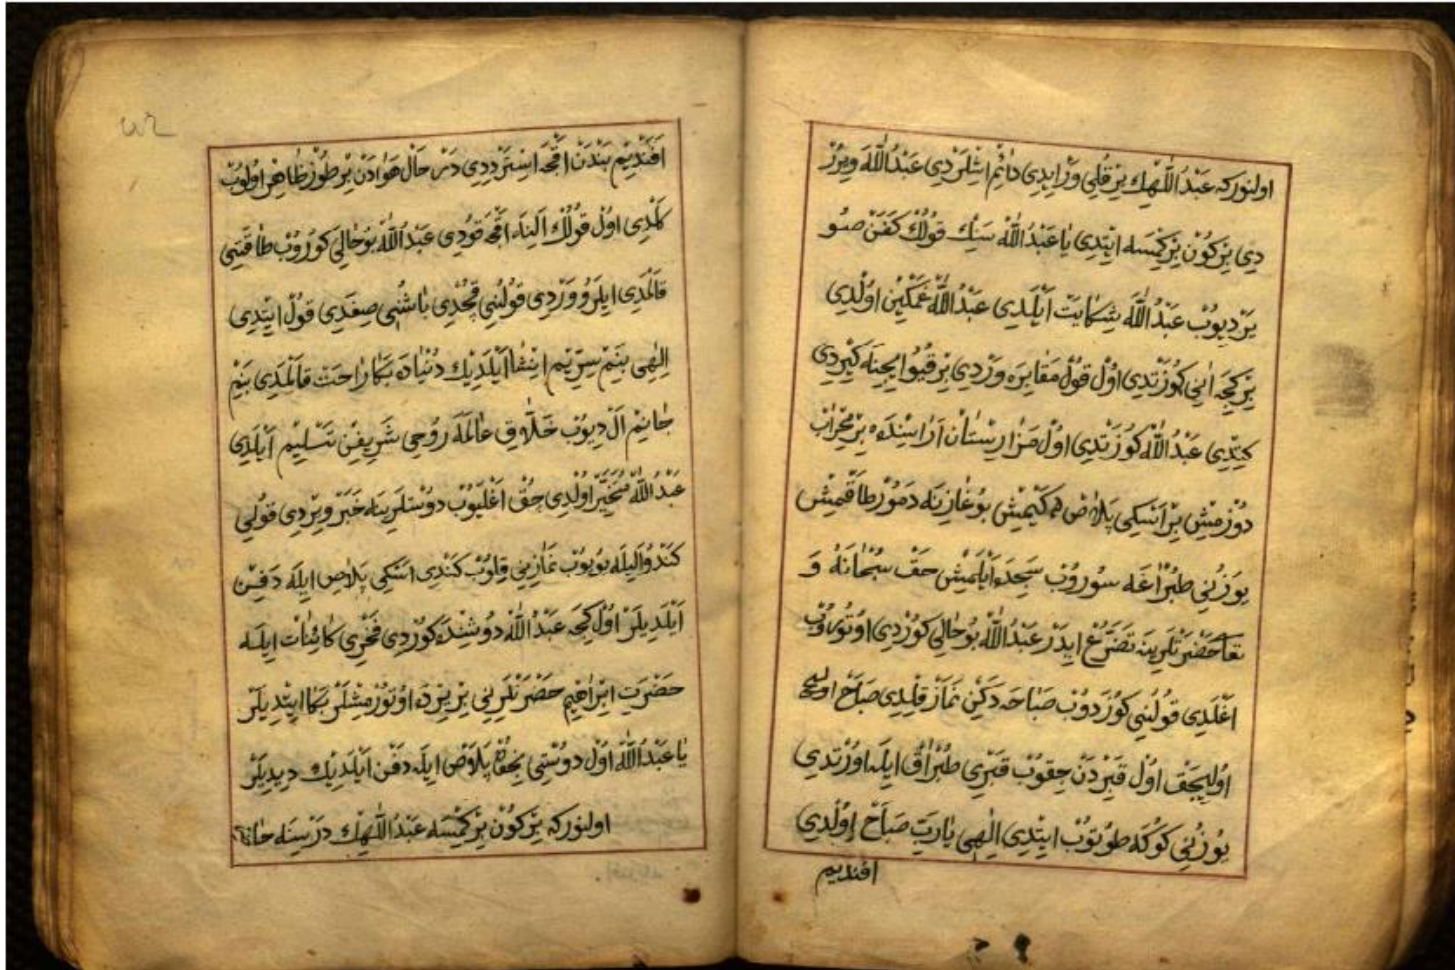 اولنوركه عَبْدُ اللّٰهِكْ بِرْ قُلِي وَرْ اِيدِى دَائِمْ اِشْلَرْدِى عَبْدُ اللّٰهَ وِيرُرْ
دِى بِرْ كُونْ بِرْ كِمْسَه اِيتْدِى يَا عَبْدُ اللّٰهْ سَنِكْ قُولُكْ كَفَنْ صُو
يَرْ دِيوُبْ عَبْدُ اللّٰهَ شِكَايَتْ اَيْلَدِى عَبْدُ اللّٰهْ غَمْكِينْ اُولْدِى
بِرْ كِجَه اَنِي كُوزَتْدِى اُولْ قُولْ مَقَابِرَه وَرْدِى بِرْ قَبُو اِيچِنَه كِيرْدِى
كِتْدِى عَبْدُ اللّٰهْ كُوزَتْدِى اُولْ مَزَارِسْتَانْ اَرَاسِنْدَه بِرْ مِحْرَابْ
دُوزْمِشْ بِرْ اَسْكِى پَلَاصْ كَيْمِشْ بُوغَازِينَه دَمُورْ طَاقْمِشْ
يوُزُنِي طُپْرَاغَه سُورُوبْ سَجْدَه اَيْلَمِشْ حَقْ سُبْحَانَهُ وَ
تعا حَضْرَتْلَرِينَه تَضَرُّعْ اِيدَرْ عَبْدُ اللّٰهْ بُو حَالِي كُورْدِى اوُتُورُوبْ
اَغْلَدِى قُولُنِي كُوزَدوُبْ صَبَاحَه دَكِينْ نَمَازْ قِلْدِى صَبَاحْ
اوُلِيجَقْ اوُلْ قَبِرْدَنْ چِقوُبْ قَبْرِى طُپْرَاقْ اِيلَه اوُرْتْدِى
يوُزُنِي كوُكَه طوُتوُبْ اِيتْدِى اِلٰهِى يَا رَبْ صَبَاحْ اوُلْدِى
افنديم
اَفَنْدِيمْ بَنْدَنْ اَقْچَه اِسْتَرْ دِدِى دَرْ حَالْ هَوَادَنْ بِرْ طوُرْ ظَاهِرْ اوُلوُبْ
كَلْدِى اوُلْ قوُلُكْ اَلِنَه اَقْچَه قوُدِى عَبْدُ اللّٰهْ بوُ حَالِي كوُروُبْ طَاقَتِى
قَالْمَدِى اِيلَرُو وَرْدِى قوُلُنِى قُچْدِى بَاشُنِى صِغَدِى قوُلْ اِيتْدِى
اِلٰهِى بَنِمْ سِرِّيمْ اِفْشَا اَيْلَدِيكْ دُنْيَادَه بَكَا رَاحَتْ قَالْمَدِى بَنِمْ
جَانِمْ اَلْ دِيوُبْ خَلَّاقِ عَالَمَه رُوحِى شَرِيفِنْ تَسْلِيمْ اَيْلَدِى
عَبْدُ اللّٰهْ مُتَحَيِّرْ اوُلْدِى چُقْ اَغْلَيوُبْ دوُسْتْلَرِينَه خَبَرْ وِيرْدِى قوُلِى
كَنْدوُ اَلِيلَه يوُيوُبْ نَمَازِينِى قِلوُبْ كَنْدِى اَسْكِى پَلَاصْ اِيلَه دَفِينْ
اَيْلَدِيلَرْ اوُلْ كِجَه عَبْدُ اللّٰهْ دوُشِنْدَه كوُرْدِى فَخْرِى كَائِنَاتْ اِيلَه
حَضْرَتِ اِبْرَاهِيمْ حَضْرَتْلَرِينِى بِرْ يِرْدَه اوُتوُرْمِشْلَرْ بَكَا اِيتْدِيلَرْ
يَا عَبْدَ اللّٰهْ اوُلْ دوُسْتِمِى نِچوُنْ پَلَاصْ اِيلَه دَفْنْ اَيْلَدِيكْ دِيدِيلَرْ
اولنوركه بِرْ كُونْ بِرْ كِمْسَه عَبْدُ اللّٰهِكْ دَرْسِنَه